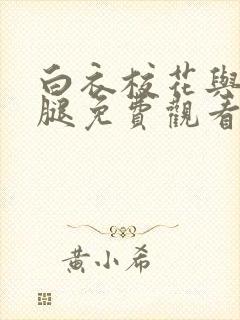 白衣校花與
腿免費觀看
黃小希